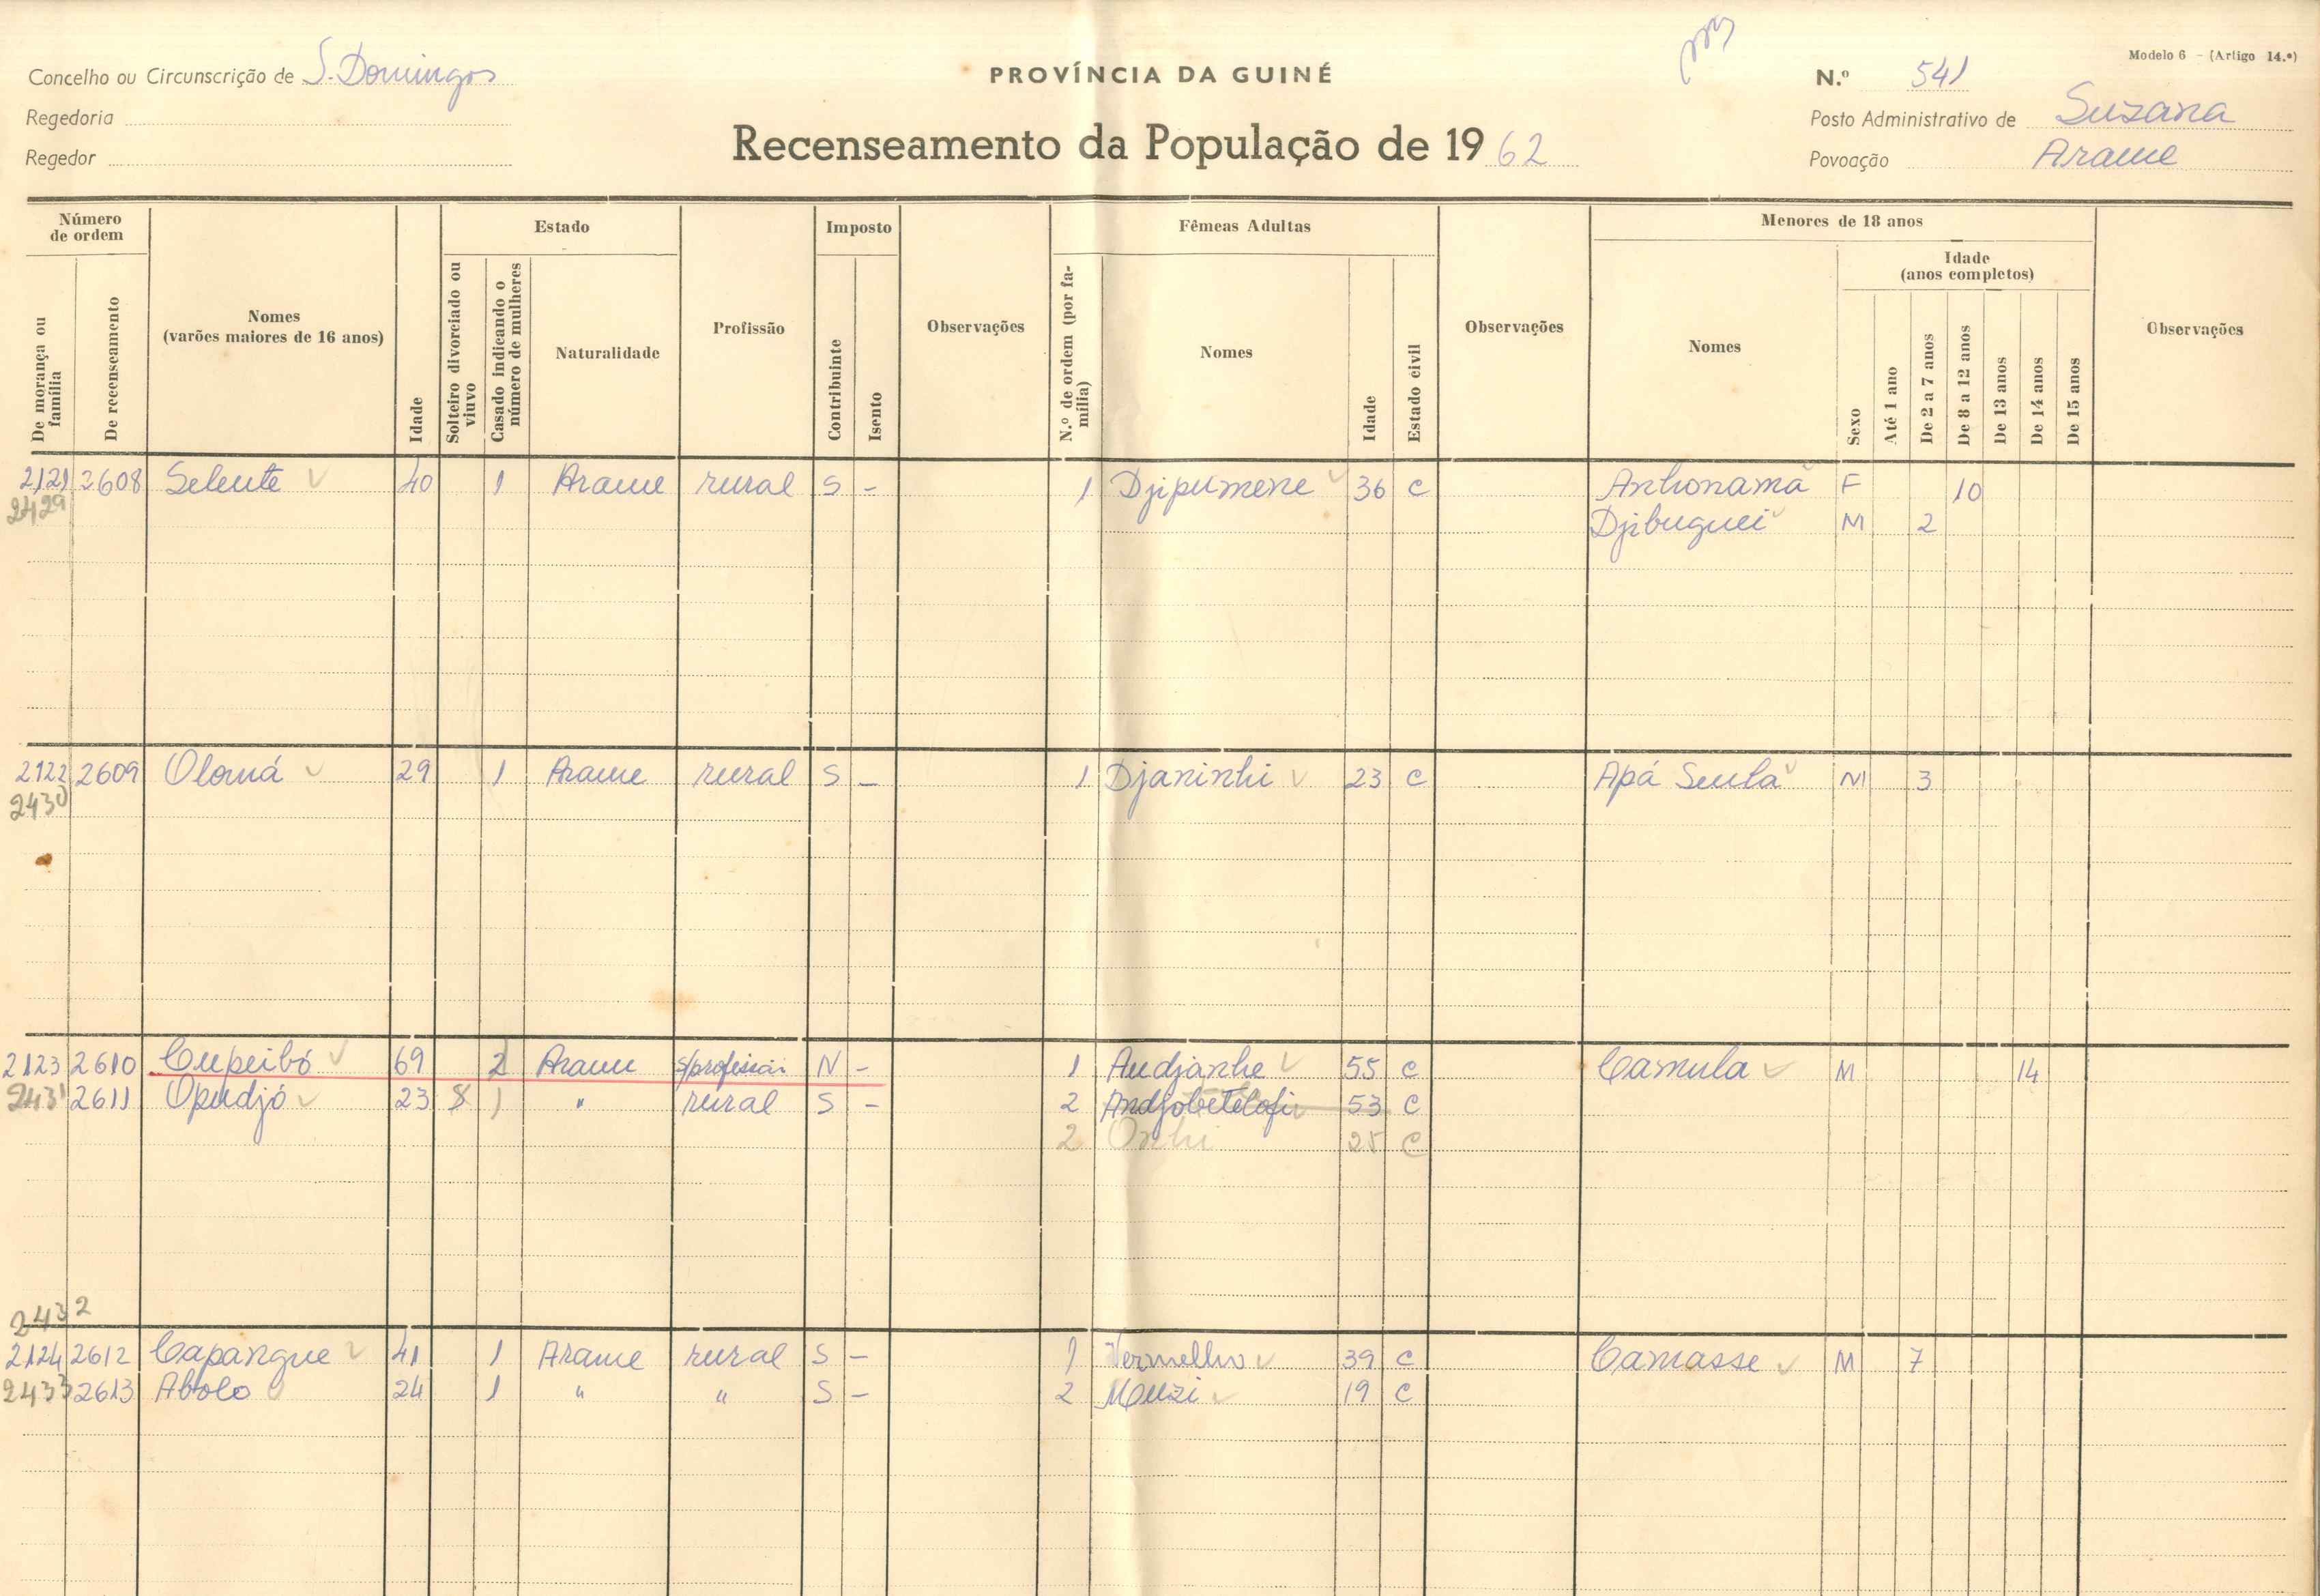 Modelo 6 - (Artigo 14.º)
Concelho ou Circunscrição de S. Domingos
PROVÍNCIA DA GUINÉ
N.º 541
Regedoria
Posto Administrativo de Suzana
Regedor
Recenseamento da População de 1962
Povoação Arame
Número de ordem
Estado
Imposto
Fêmeas Adultas
Menores de 18 anos
De morança ou família
De recenseamento
Nomes (varões maiores de 16 anos)
Idade
Solteiro divorciado ou viuvo
Casado indicando o número de mulheres
Naturalidade
Profissão
Contribuinte
Isento
Observações
N.º de ordem (por família)
Nomes
Idade
Estado civil
Observações
Nomes
Sexo
Idade (anos completos)
Até 1 ano
De 2 a 7 anos
De 8 a 12 anos
De 13 anos
De 14 anos
De 15 anos
Observações
2121 2608 Selente 40 1 Arame rural S - 1 Djipumene 36 C Anhonamã F 10
2429 Djibuguei M 2
2122 2609 Olomá 29 1 Arame rural S - 1 Djaninhi 23 C Apá Senla M 3
2430
2123 2610 Cupeibó 69 2 Arame s/profissão N - 1 Audjanhe 55 C Camula M 14
2431 2611 Opudjó 23 1 " rural S - 2 Andjobetelofi 53 C
2 Onhi 25 C
2432
2124 2612 Capangue 41 1 Arame rural S - 1 Vermelho 39 C Camasse M 7
2433 2613 Abolo 24 1 " " S - 2 Muzi 19 C